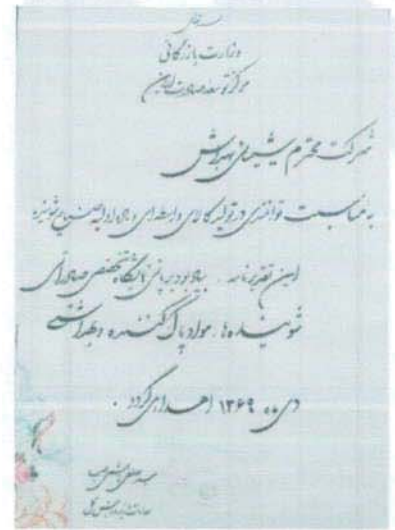 وزارت بازرگانی
مرکز توسعه صادرات ایران
شرکت محترم شیمیائی بهداش
به مناسبت توانمندی در تولید کالای واسطه‌ای و مواد اولیه صنایع شوینده
این تقدیرنامه بیادبود برپائی نمایشگاه تخصصی صادراتی
شوینده‌ها، مواد پاک کننده و بهداشتی
دی ماه ۱۳۶۹ اهدا می‌گردد.